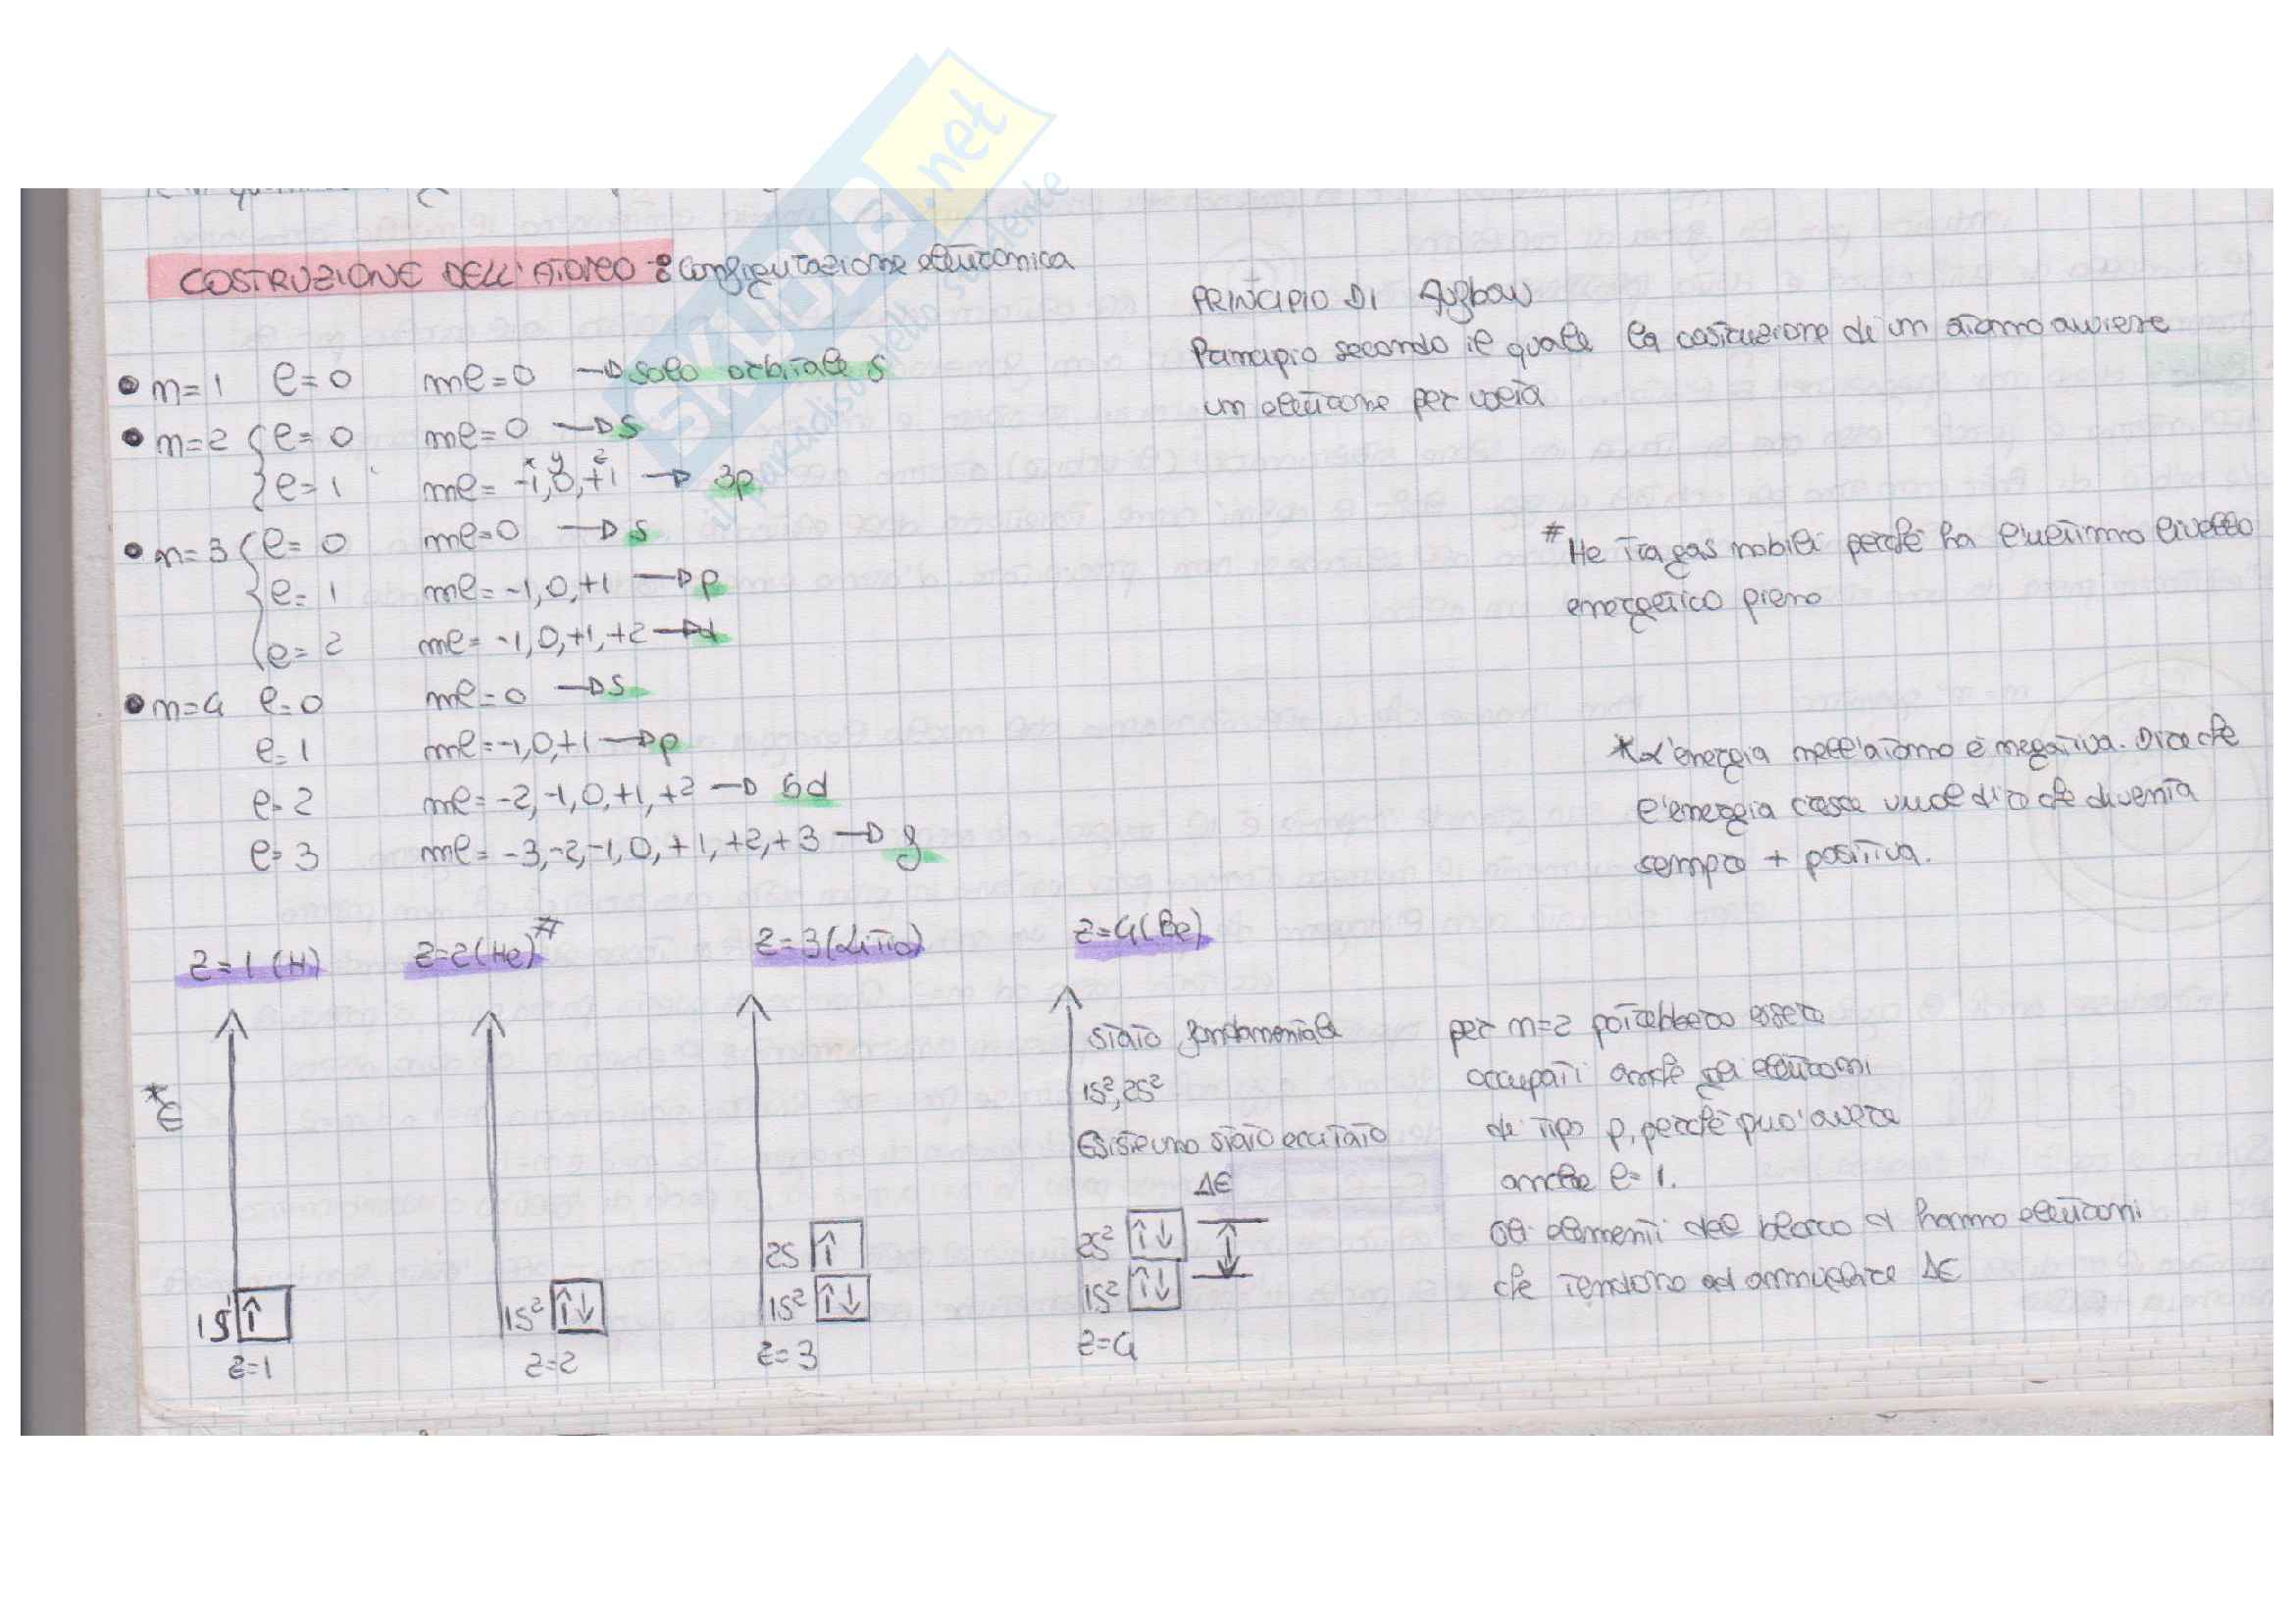 COSTRUZIONE DELL'ATOMO : Configurazione elettronica
• n=1 l=0 ml=0 → solo orbitale s
• n=2 { l=0 ml=0 → s
x y z
l=1 ml= -1,0,+1 → 3p
• n=3 { l=0 ml=0 → s
l=1 ml=-1,0,+1 → p
l=2 ml= -1,0,+1,+2 → d
• n=4 l=0 ml=0 → s
l=1 ml=-1,0,+1 → p
l=2 ml=-2,-1,0,+1,+2 → 5d
l=3 ml= -3,-2,-1,0,+1,+2,+3 → f
PRINCIPIO DI Aufbau
Principio secondo il quale la costruzione di un atomo avviene
un elettrone per volta
# He tra gas nobili perché ha l'ultimo livello
energetico pieno
* L'energia nell'atomo è negativa. Dire che
l'energia cresce vuol dire che diventa
sempre + positiva.
z=1 (H) z=2 (He)# z=3 (Litio) z=4 (Be)
*E
stato fondamentale
1s², 2s²
Esiste uno stato eccitato
ΔE
1s¹ ↑
z=1
1s² ↑↓
z=2
2s ↑
1s² ↑↓
z=3
2s² ↑↓
1s² ↑↓
z=4
per n=2 potrebbero essere
occupati anche gli elettroni
di tipo p, perché può avere
anche l=1.
Gli elementi del blocco d hanno elettroni
che tendono ad annullare ΔE
SKUOLA.net
il paradiso dello studente